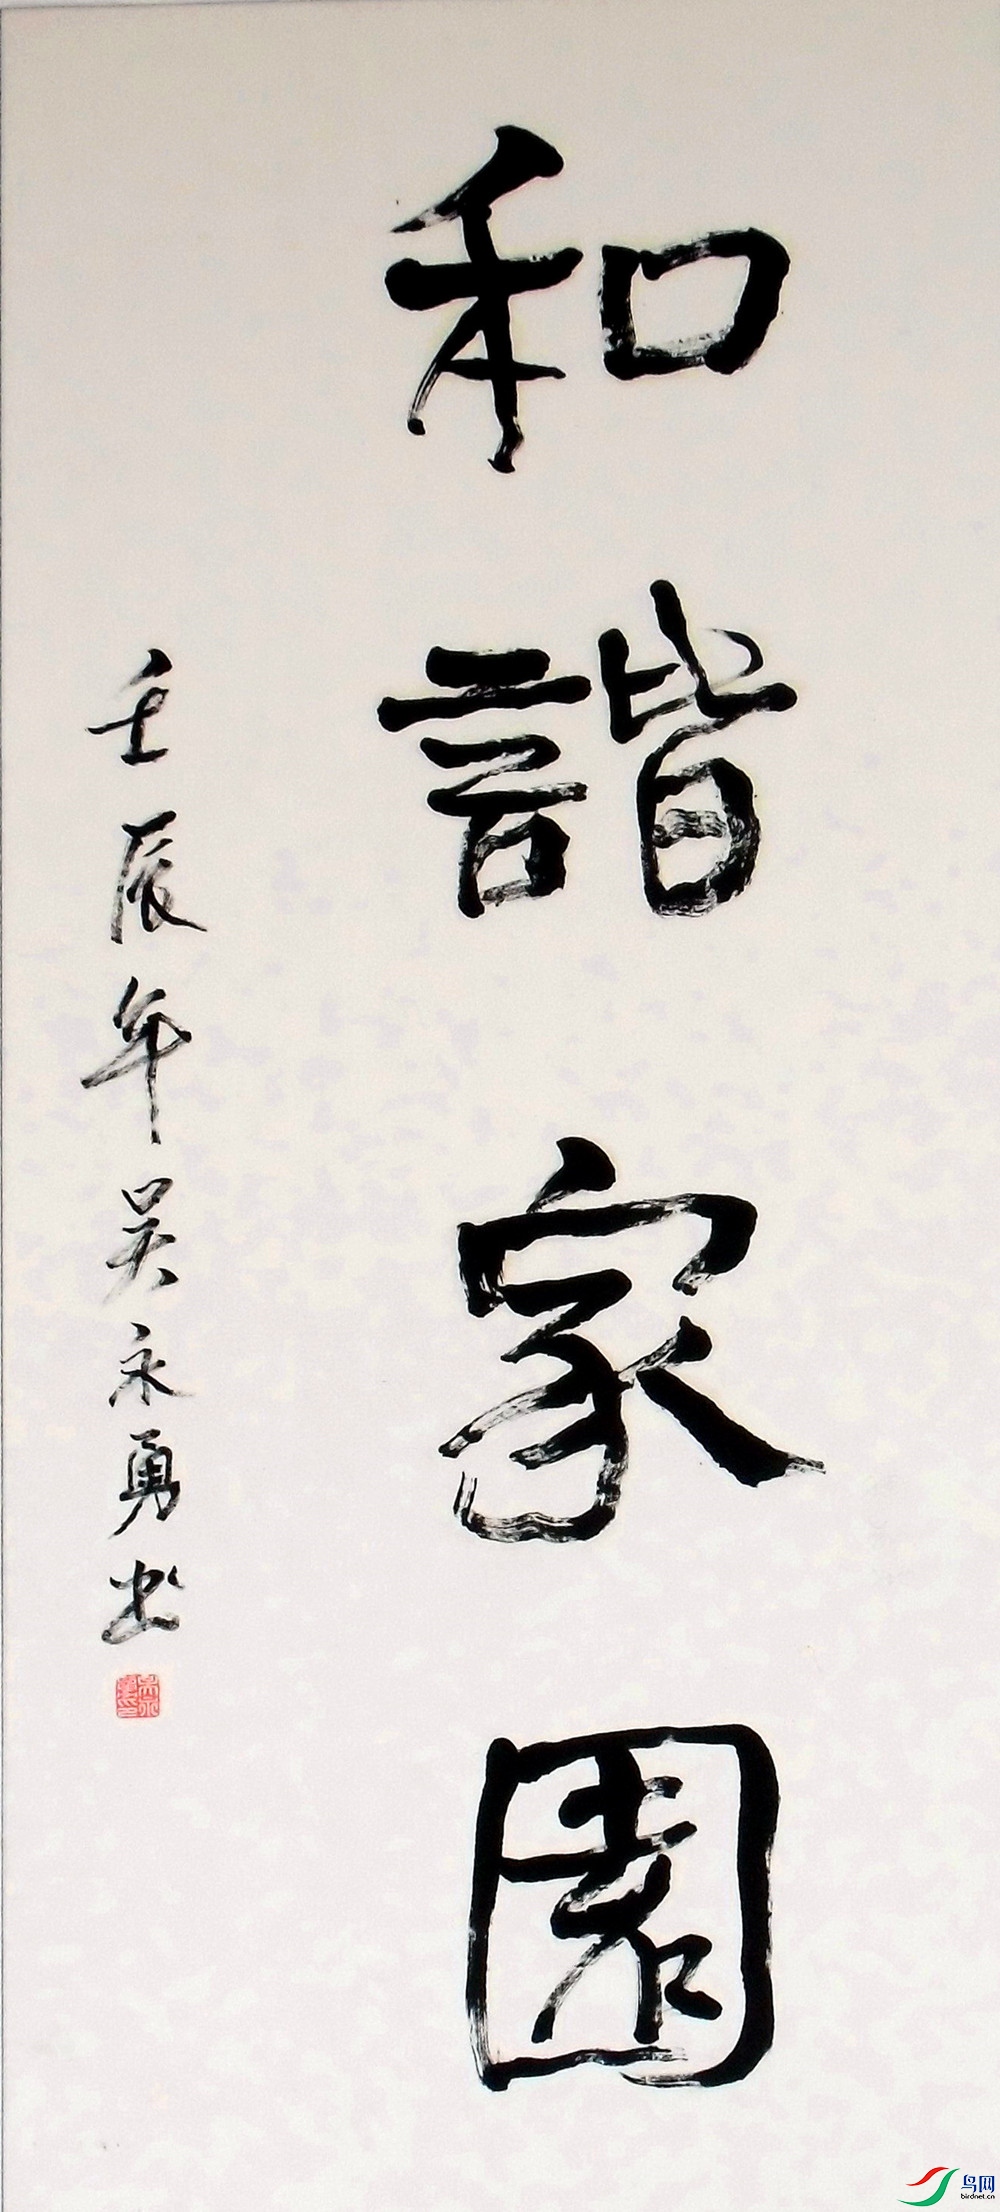 和諧家園
壬辰年吴永勇书
鸟网
birdnet.cn